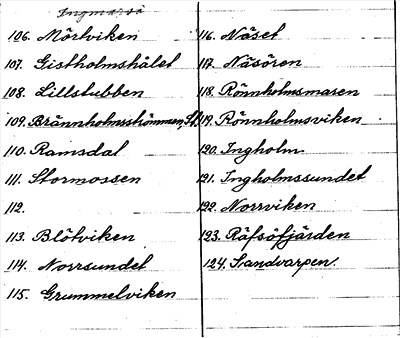 Ingmarsö
106. Mörtviken
107. Gistholmshålet
108. Lillstubben
109. Brännholmsströmmen, St.
110. Ramsdal
111. Stormossen
112.
113. Blötviken
114. Norrsundet
115. Grummelviken
116. Näset
117. Näsören
118. Rönnholmsmaren
119. Rönnholmsviken
120. Ingholm
121. Ingholmssundet
122. Norrviken
123. Räfsöfjärden
124. Sandvarpen.